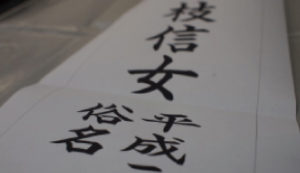 枝信女
平成
俗名